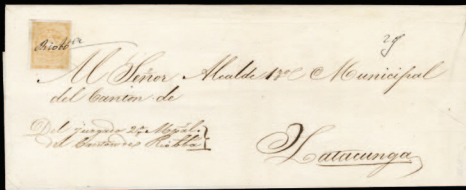 Riobba
29
Al Señor Alcalde 1ro Municipal
del Canton de
Del juzgado 2º Mpal.
del Canton de Riobba
Latacunga